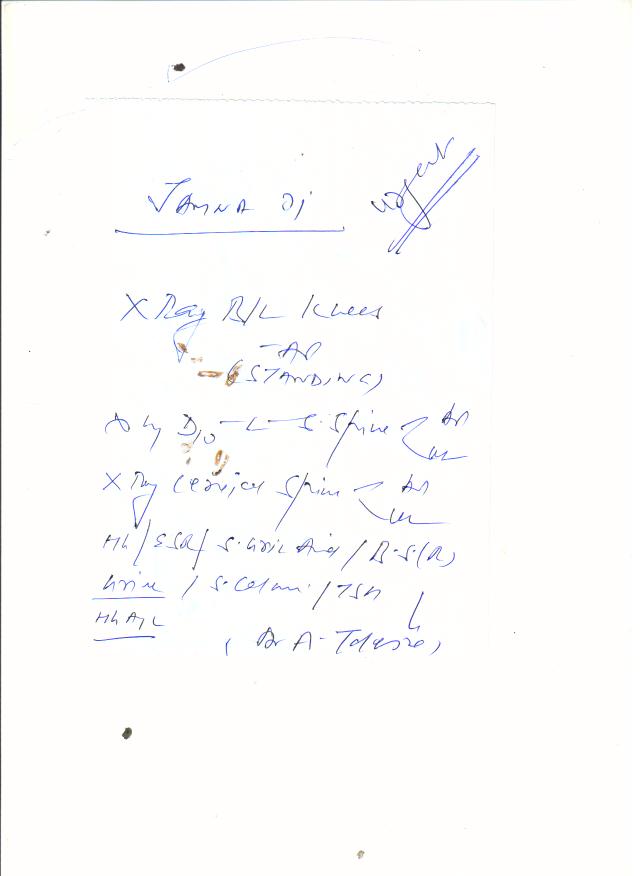 Urgent
JAMNA DI
X Ray B/L Knees
- AP
(STANDING)
X Ray D10 - L - S. Spine < AP
Lat
X Ray Cervical Spine < AP
Lat
Hb / ESR / S. Uric Acid / B.S(R)
Urine / S. Calcium / TSH
HbA1C
(Dr A.